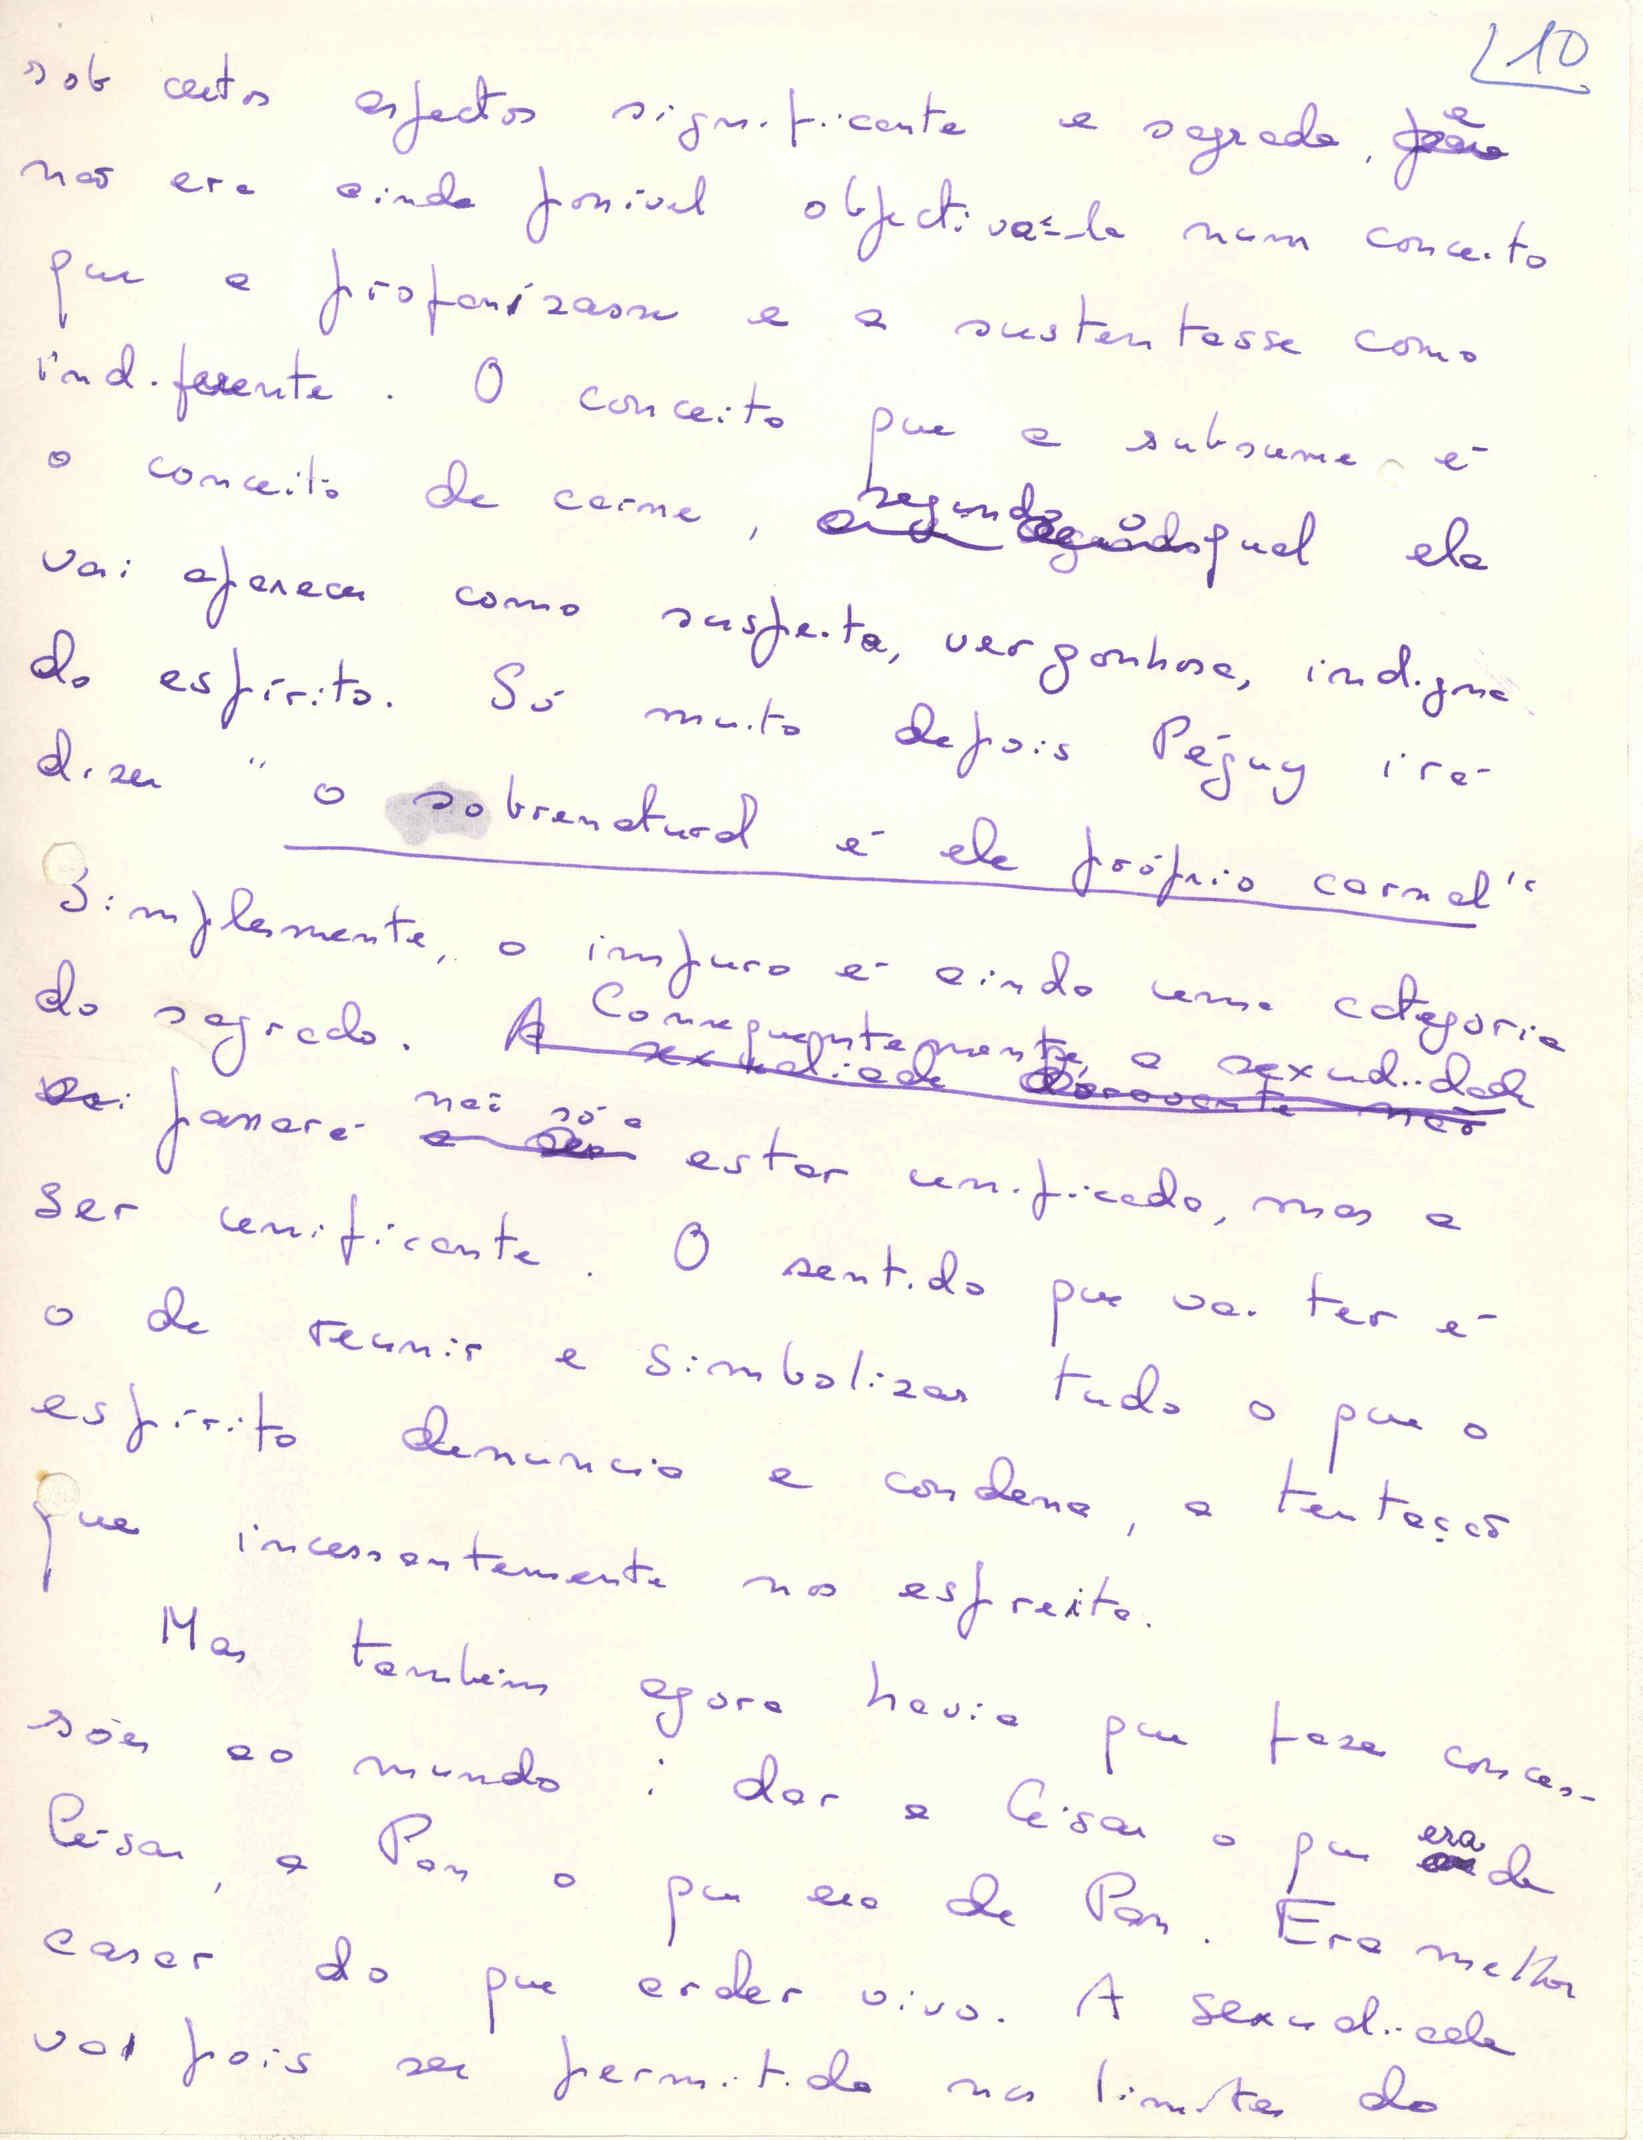 10
sob certos aspectos significante e sagrada, e
não era ainda possível objectivá-la num conceito
que a profanizasse e a sustentasse como
indiferente. O conceito que a subsume é
o conceito de carne, segundo o qual ela
vai aparecer como suspeita, vergonhosa, indigna
do espírito. Só muito depois Péguy irá
dizer "o sobrenatural é ele próprio carnal"
Simplesmente, o impuro é ainda uma categoria
do sagrado. A sexualidade doravante não Consequentemente, a sexualidade
passará não só a estar unificada, mas a
ser unificante. O sentido que vai ter é
o de reunir e simbolizar tudo o que o
espírito denuncia e condena, a tentação
que incessantemente nos espreita.
Mas também agora havia que fazer conces-
sões ao mundo: dar a César o que era de
César, a Pan o que era de Pan. Era melhor
casar do que arder vivo. A sexualidade
vai pois ser permitida nos limites do